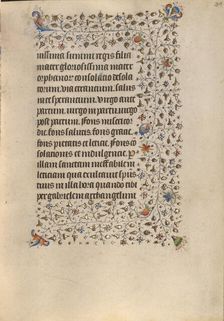 nissima summi regis filia
mater gloriosissima mater
orphanor consolacio desola
torum. via errancium. salus
in te sperancium. virgo ante
partum. virgo in partu. virgo
post partum. fons misericor
die. fons salutis. fons gracie.
fons pietatis et leticie. fons co
solationis et indulgencie. p
illam sanctam ineffabilem
leticiam qua exultauit spiri
tus in illa hora quando tibi
per gabrielem archangelum